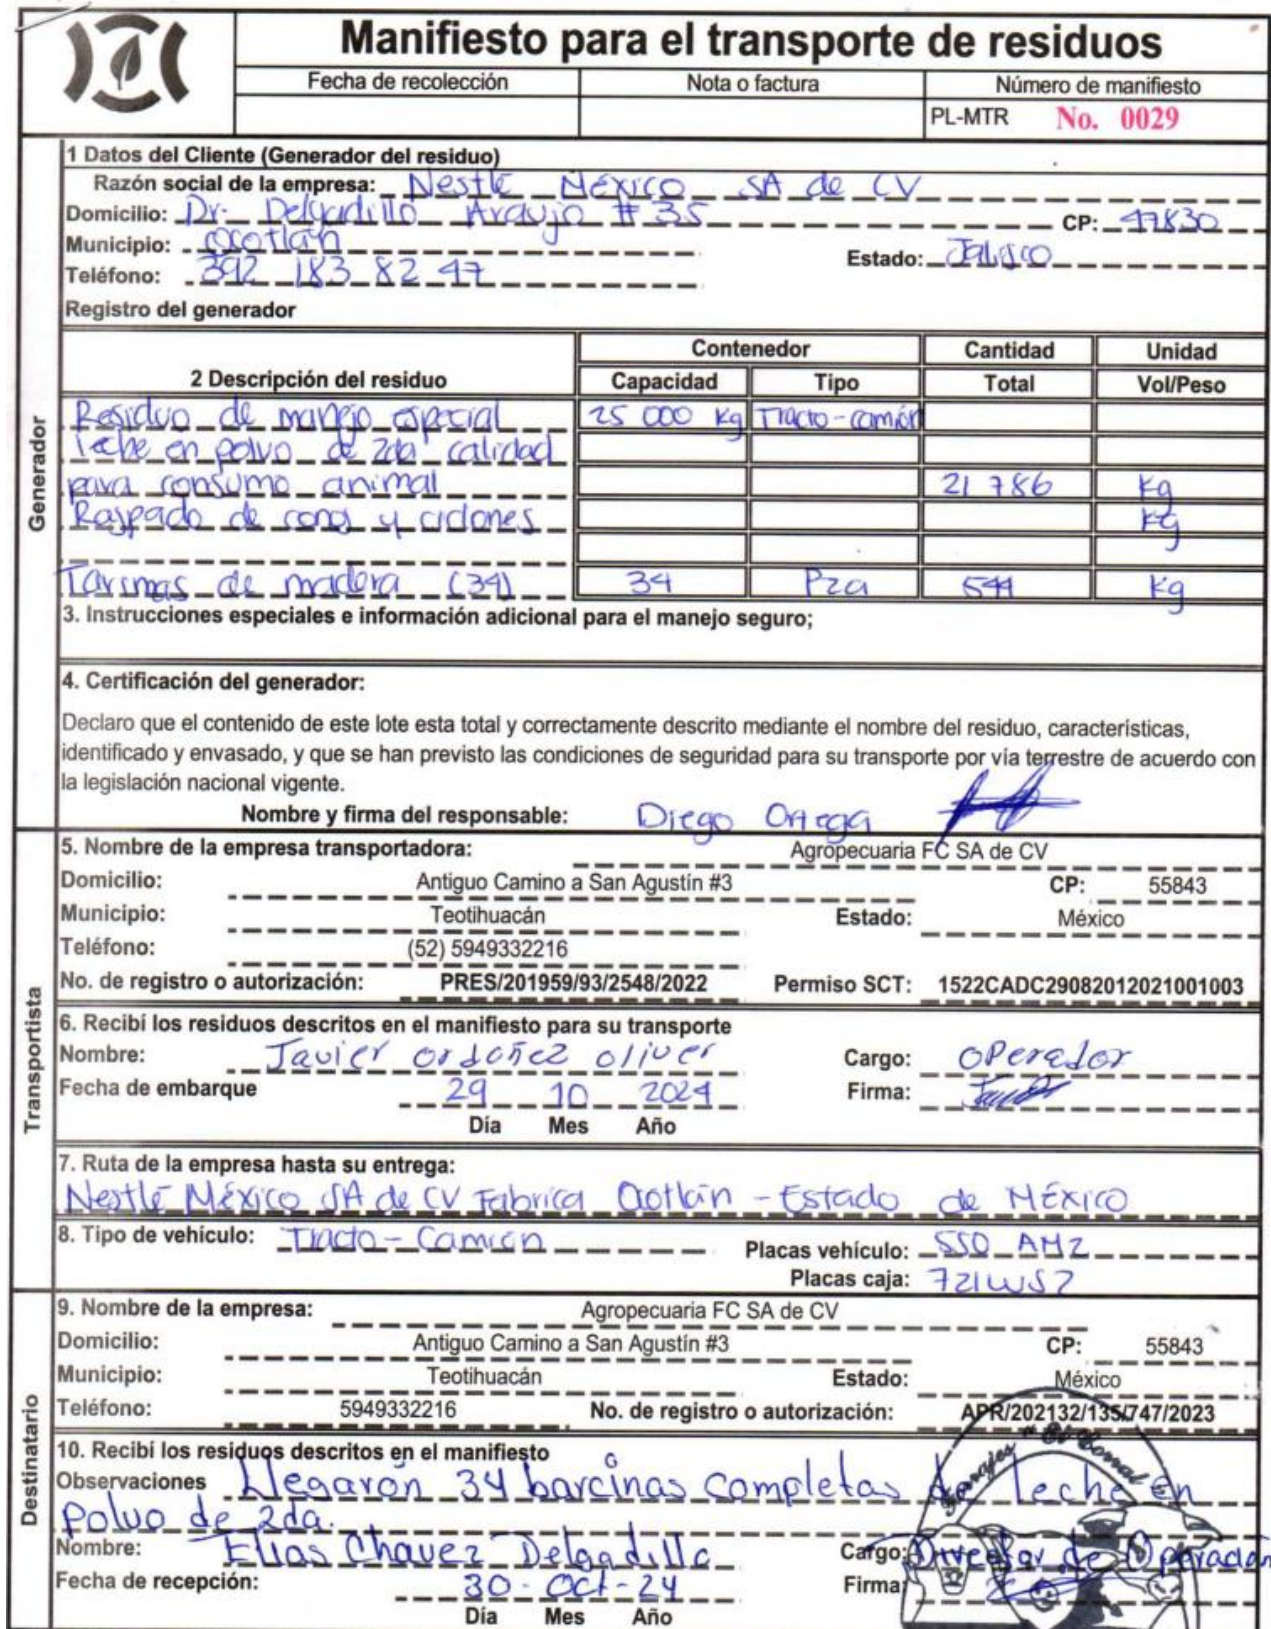 Manifiesto para el transporte de residuos
Fecha de recolección Nota o factura Número de manifiesto
PL-MTR No. 0029
Generador
1 Datos del Cliente (Generador del residuo)
Razón social de la empresa: Nestlé México SA de CV
Domicilio: Dr. Delgadillo Araujo #35 CP: 47830
Municipio: Ocotlán
Estado: Jalisco
Teléfono: 392 183 82 47
Registro del generador
Contenedor Cantidad Unidad
2 Descripción del residuo Capacidad Tipo Total Vol/Peso
Residuo de manejo especial 25 000 Kg Tracto-camión
leche en polvo de 2da calidad
para consumo animal 21 786 Kg
Raspado de conos y ciclones Kg
Tarimas de madera (34) 34 Pza 544 Kg
3. Instrucciones especiales e información adicional para el manejo seguro;
4. Certificación del generador:
Declaro que el contenido de este lote esta total y correctamente descrito mediante el nombre del residuo, características,
identificado y envasado, y que se han previsto las condiciones de seguridad para su transporte por vía terrestre de acuerdo con
la legislación nacional vigente.
Nombre y firma del responsable: Diego Ortega
Transportista
5. Nombre de la empresa transportadora: Agropecuaria FC SA de CV
Domicilio: Antiguo Camino a San Agustín #3 CP: 55843
Municipio: Teotihuacán Estado: México
Teléfono: (52) 5949332216
No. de registro o autorización: PRES/201959/93/2548/2022 Permiso SCT: 1522CADC29082012021001003
6. Recibí los residuos descritos en el manifiesto para su transporte
Nombre: Javier ordoñez oliver Cargo: operador
Fecha de embarque 29 10 2024 Firma:
Día Mes Año
7. Ruta de la empresa hasta su entrega:
Nestlé México SA de CV Fabrica Ocotlán - Estado de México
8. Tipo de vehículo: Tracto-Camión Placas vehículo: 550 AM2
Placas caja: 721WS7
Destinatario
9. Nombre de la empresa: Agropecuaria FC SA de CV
Domicilio: Antiguo Camino a San Agustín #3 CP: 55843
Municipio: Teotihuacán Estado: México
Teléfono: 5949332216 No. de registro o autorización: APR/202132/135/747/2023
10. Recibí los residuos descritos en el manifiesto
Observaciones Llegarón 34 barcinas completas de leche en
polvo de 2da.
Nombre: Elias Chavez Delgadillo Cargo: Director de Operación
Fecha de recepción: 30-Oct-24 Firma:
Día Mes Año
Forrajes El Corral